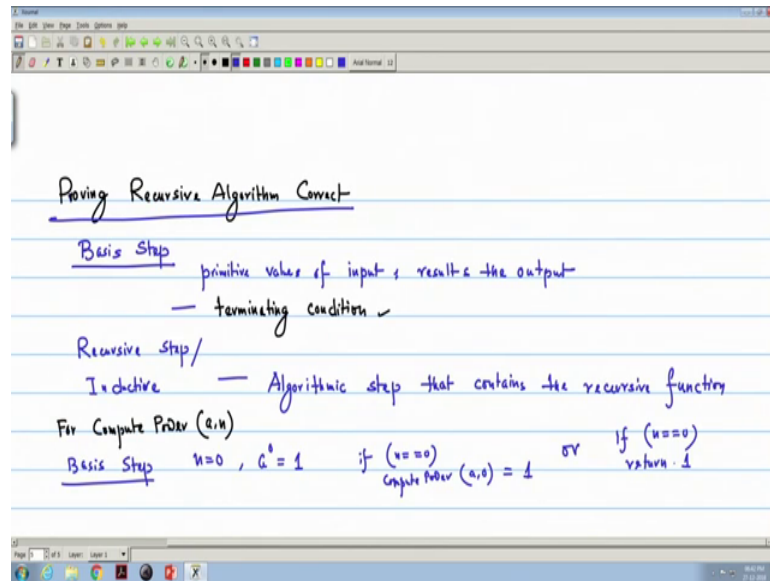 Journal
File Edit View Page Tools Options Help
Arial Normal 12
Proving Recursive Algorithm Correct
Basis Step
primitive values of input & results the output
— terminating condition ✓
Recursive Step/
Inductive — Algorithmic step that contains the recursive function
For Compute Power (a,n)
Basis Step n=0, a⁰ = 1 if (n==0) or If (n==0)
Compute Power (a,0) = 1 return 1
Page 5 of 5 Layer: Layer 1